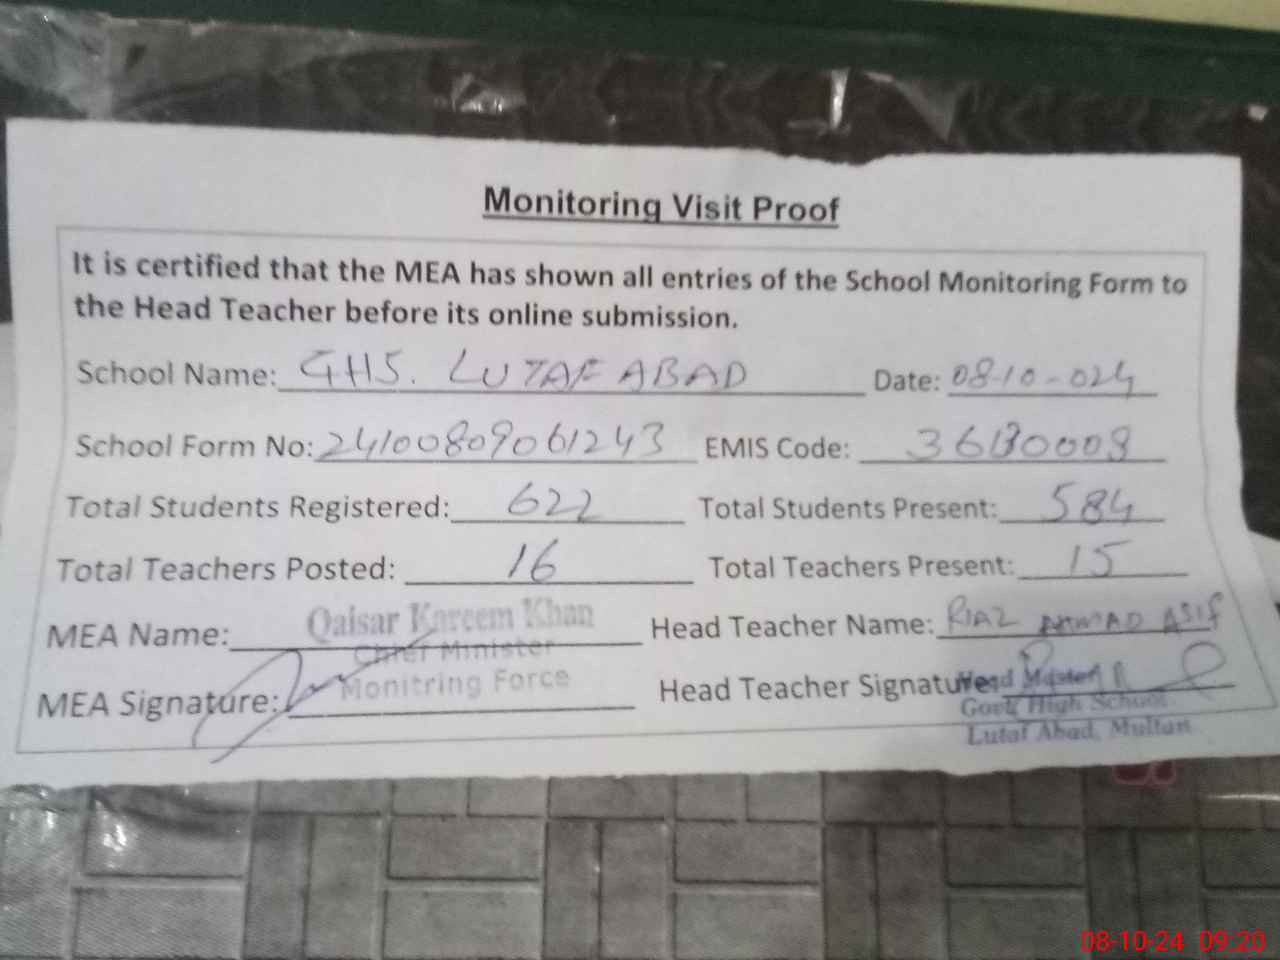 Monitoring Visit Proof
It is certified that the MEA has shown all entries of the School Monitoring Form to
the Head Teacher before its online submission.
School Name: GHS. LUTAF ABAD Date: 08-10-024
School Form No: 24100809061243 EMIS Code:
Total Students Registered: 622 Total Students Present: 584
Total Teachers Posted: 16 Total Teachers Present: 15
MEA Name: Qaisar Kareem Khan Head Teacher Name: RIAZ AHMAD ASIF
Chief Minister
MEA Signature: Monitring Force Head Teacher Signature: Head Master
Govt High School
Lutaf Abad, Multan
08-10-24 09:20